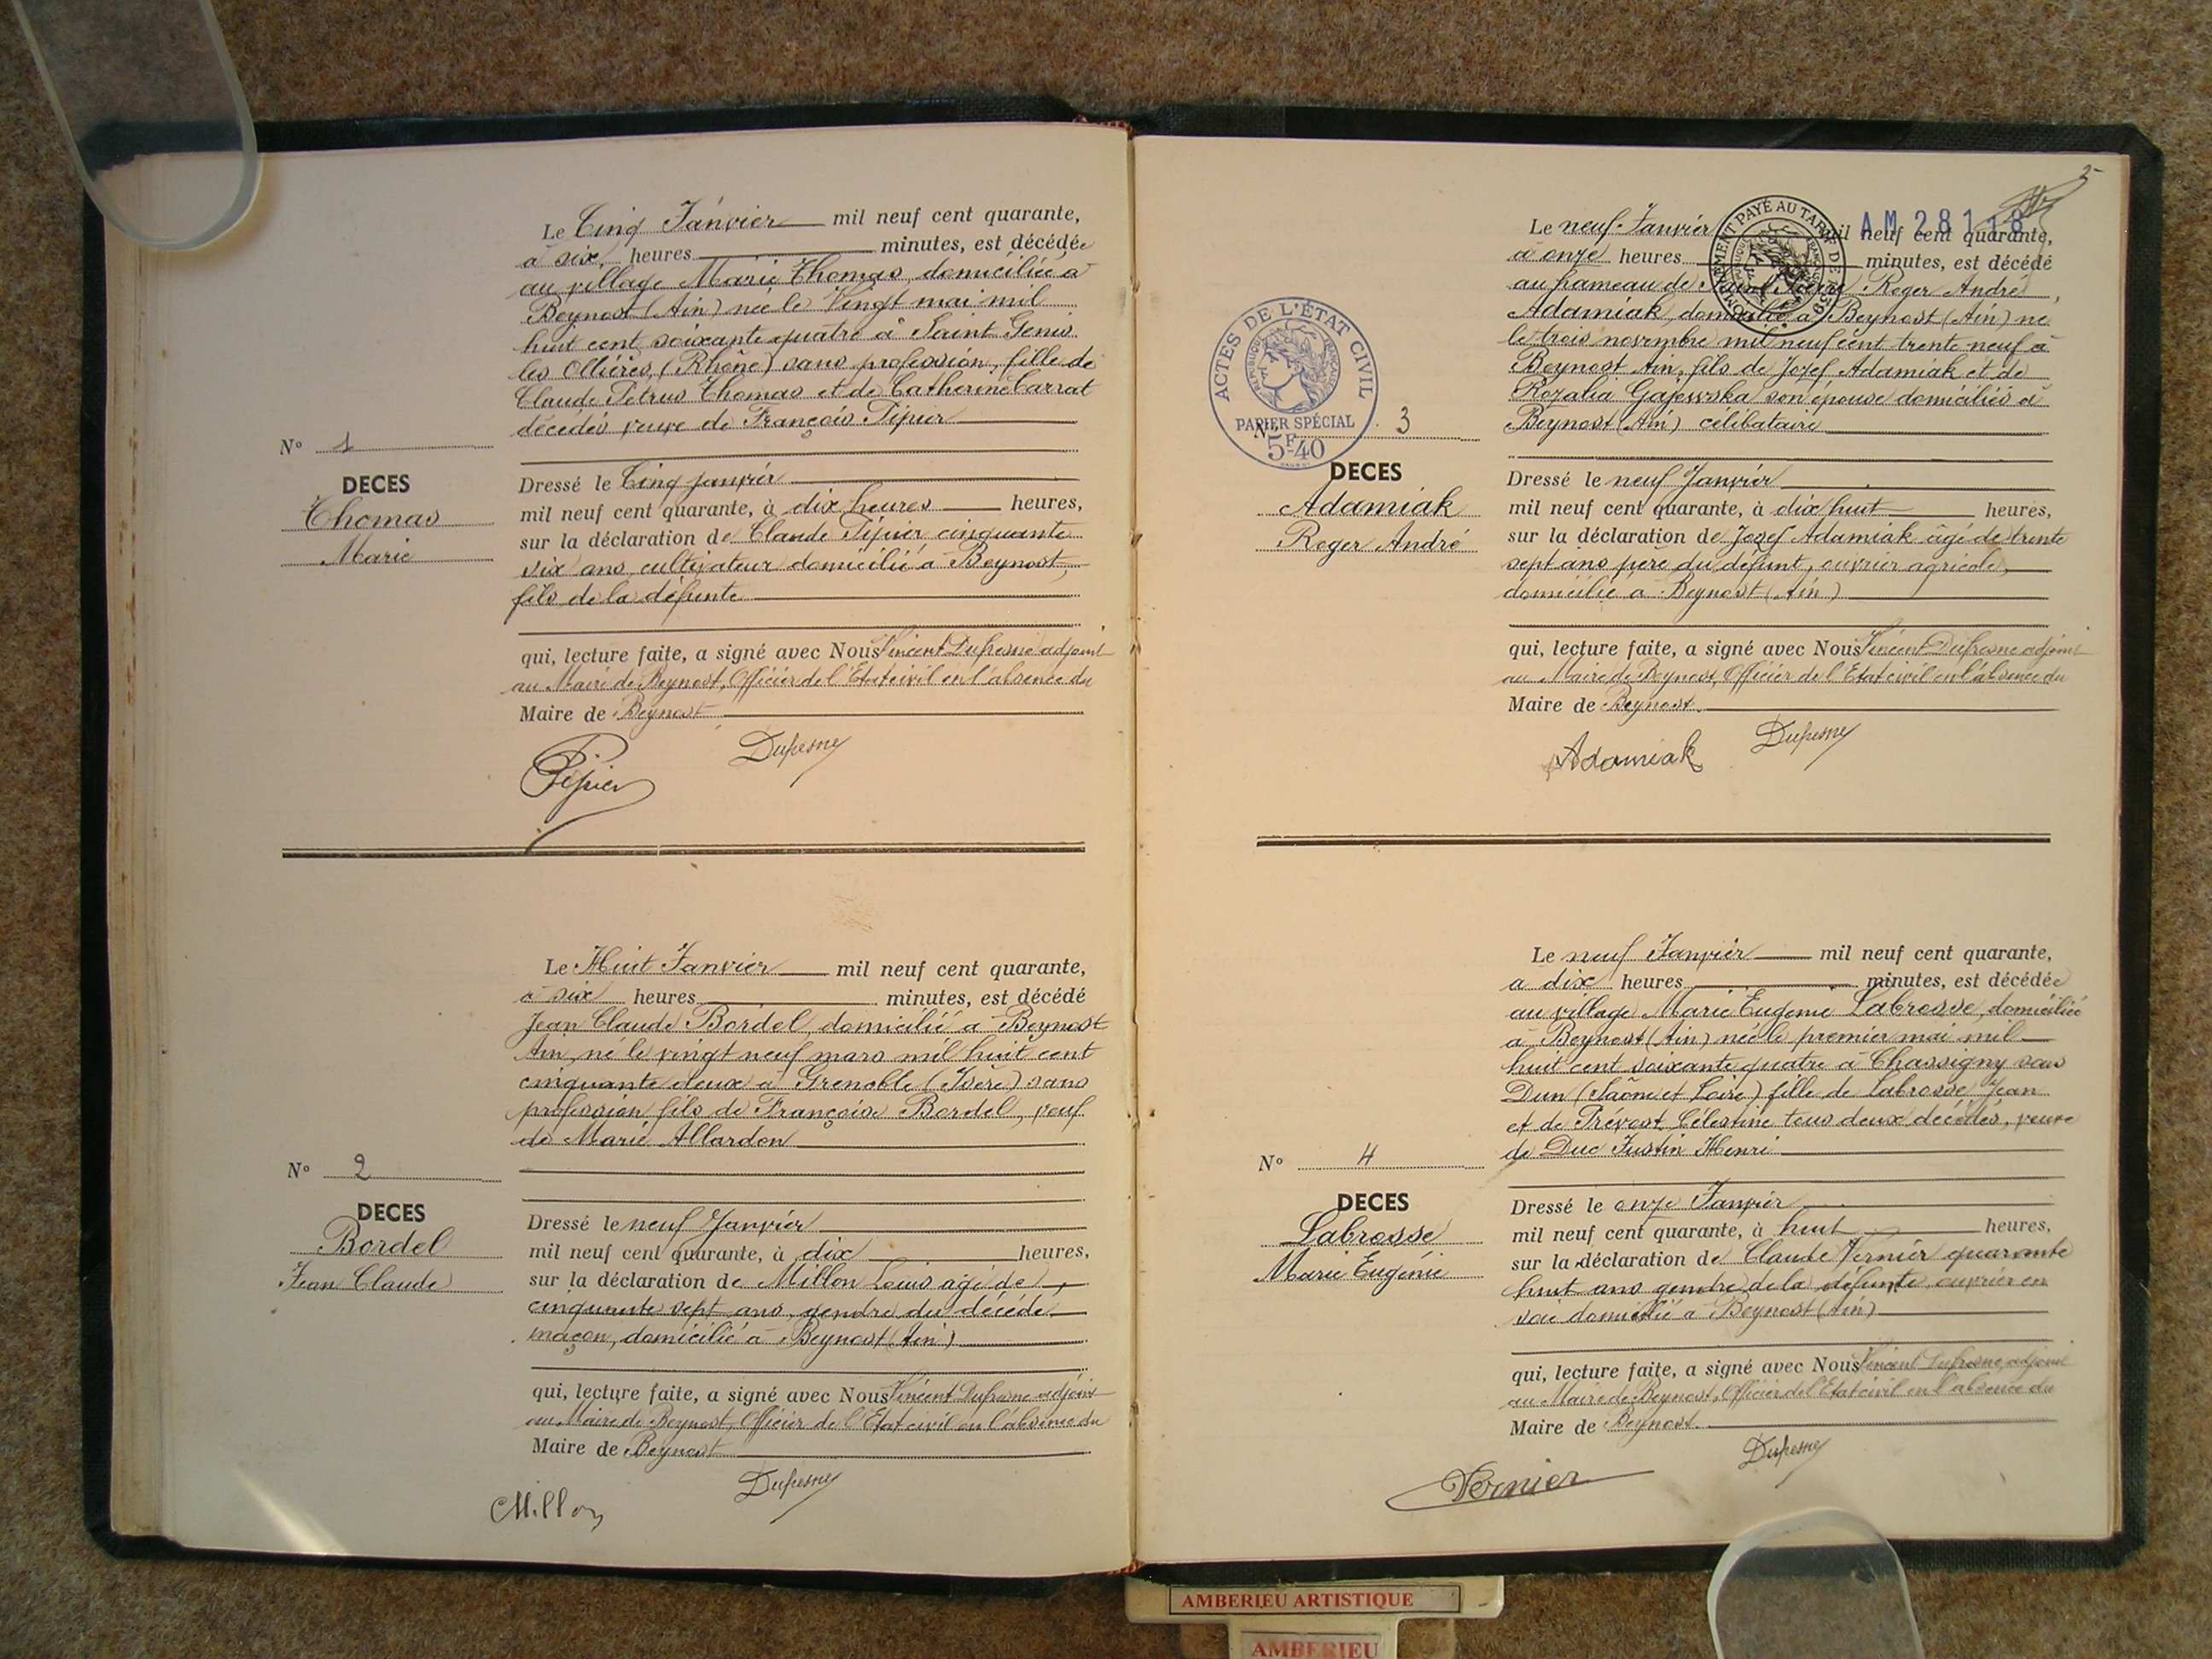 Le Cinq Janvier mil neuf cent quarante,
à six heures minutes, est décédée
au village Marie Thomas, domiciliée à
Beynost (Ain) née le Vingt mai mil
huit cent soixante quatre à Saint Genis
les Ollières, (Rhône) sans profession, fille de
Claude Pétrus Thomas et de Catherine Carrat
décédés veuve de François Pépier
N° 1
DECES
Thomas
Marie
Dressé le Cinq janvier
mil neuf cent quarante, à dix heures heures,
sur la déclaration de Claude Pépier cinquante
six ans, cultivateur domicilié à Beynost,
fils de la défunte
qui, lecture faite, a signé avec Nous Vincent Dufresne adjoint
au Maire de Beynost, Officier de l'Etat civil en l'absence du
Maire de Beynost
Pépier Dufresne
Le Huit Janvier mil neuf cent quarante,
à six heures minutes, est décédé
Jean Claude Bordel, domicilié à Beynost
Ain, né le vingt neuf mars mil huit cent
cinquante deux à Grenoble (Isère) sans
profession fils de Françoise Bordel, veuf
de Marie Allardon
N° 2
DECES
Bordel
Jean Claude
Dressé le neuf Janvier
mil neuf cent quarante, à dix heures,
sur la déclaration de Millon Louis agé de
cinquante sept ans, gendre du décédé,
maçon, domicilié à Beynost (Ain)
qui, lecture faite, a signé avec Nous Vincent Dufresne adjoint
au Maire de Beynost, Officier de l'Etat civil en l'absence du
Maire de Beynost
Millon Dufresne
AM 28118
Le neuf Janvier mil neuf cent quarante,
à onze heures minutes, est décédé
au hameau de Roger André
Adamiak, domicilié à Beynost (Ain) né
le trois novembre mil neuf cent trente neuf à
Beynost Ain, fils de Jozef Adamiak et de
Rozalia Gajewska son épouse domiciliés à
Beynost (Ain) célibataire
ACTES DE L'ÉTAT CIVIL
PAPIER SPÉCIAL
5F40
N° 3
DECES
Adamiak
Roger André
Dressé le neuf Janvier
mil neuf cent quarante, à dix huit heures,
sur la déclaration de Jozef Adamiak âgé de trente
sept ans père du défunt, ouvrier agricole,
domicilié à Beynost (Ain)
qui, lecture faite, a signé avec Nous Vincent Dufresne adjoint
au Maire de Beynost, Officier de l'Etat civil en l'absence du
Maire de Beynost.
Adamiak Dufresne
Le neuf Janvier mil neuf cent quarante,
à dix heures minutes, est décédée
au village Marie Eugénie Labrosse, domiciliée
à Beynost (Ain) née le premier mai mil
huit cent soixante quatre à Chassigny sous
Dun (Saône et Loire) fille de Labrosse Jean
et de Prévost Célestine tous deux décédés, veuve
de Duc Justin Henri
N° 4
DECES
Labrosse
Marie Eugénie
Dressé le onze Janvier
mil neuf cent quarante, à huit heures,
sur la déclaration de Claude Vernier quarante
huit ans gendre de la défunte, ouvrier en
soie domicilié à Beynost (Ain)
qui, lecture faite, a signé avec Nous Vincent Dufresne adjoint
au Maire de Beynost, Officier de l'Etat civil en l'absence du
Maire de Beynost.
Vernier Dufresne
AMBERIEU ARTISTIQUE
AMBERIEU